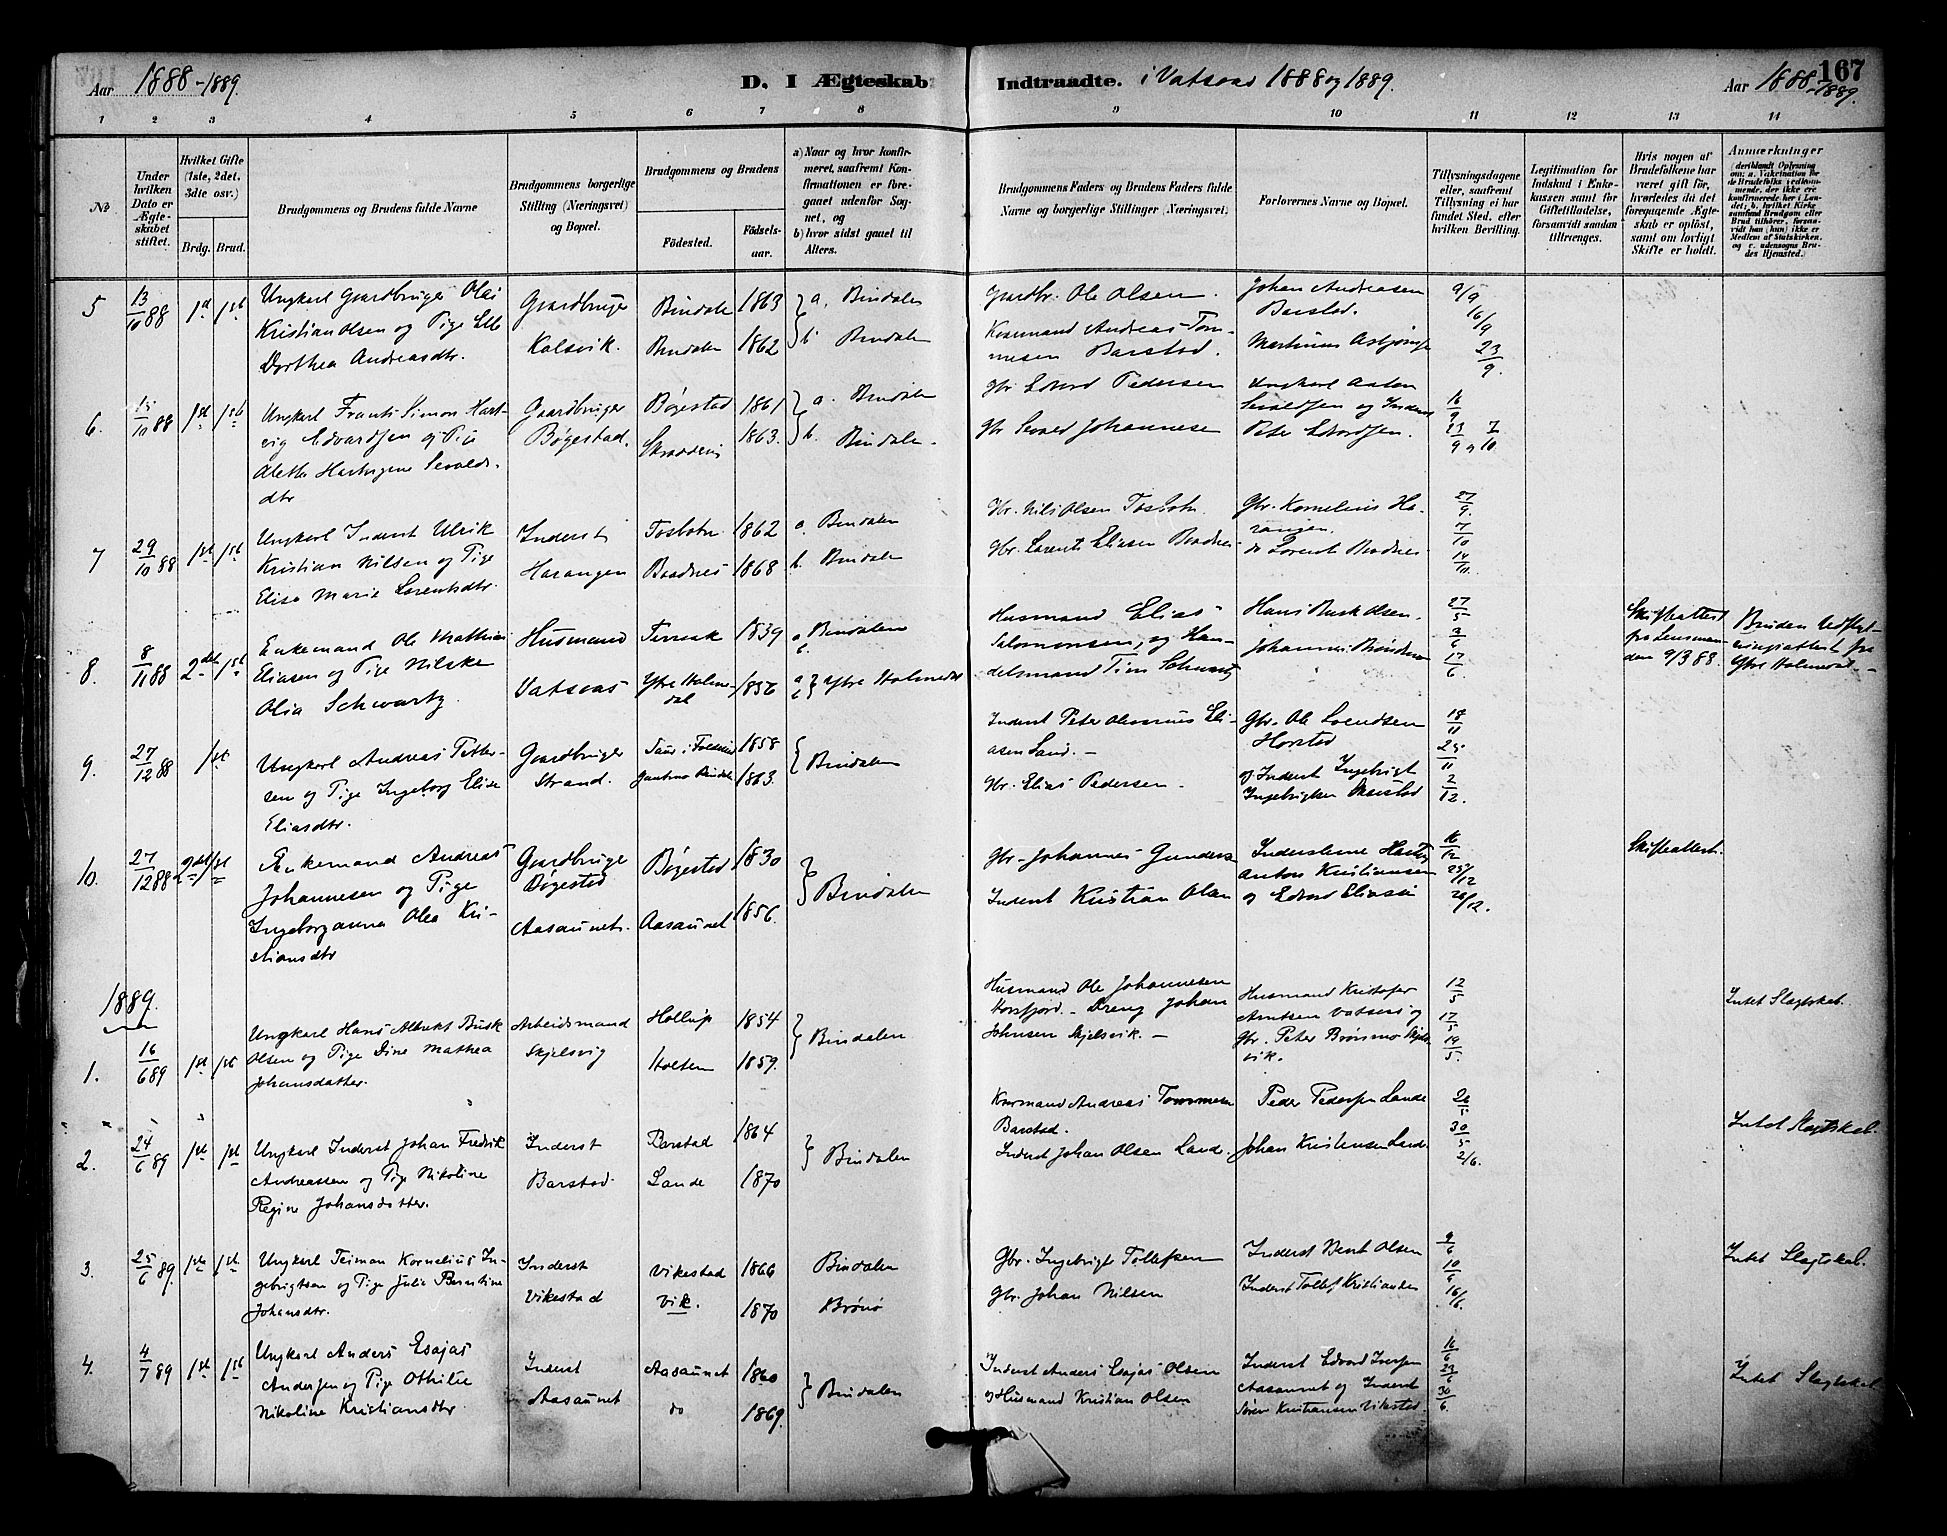 Aar 1888-1889.
D. I Ægteskab
Indtraadte. i Vatsaas 1888 og 1889.
Aar 1888-1889.
167
1 2 3 4 5 6 7 8 9 10 11 12 13 14
No.
Under hvilken Dato er Ægteskabet stiftet.
Hvilket Gifte (1ste, 2det, 3die osv.)
Brdg. Brud.
Brudgommens og Brudens fulde Navne
Brudgommens borgerlige Stilling (Næringsvei) og Bopæl.
Brudgommens og Brudens
Fødested.
Fødselsaar.
a) Naar og hvor konfirmeret, saafremt Konfirmationen er foregaaet udenfor Sognet, og
b) hvor sidst gaaet til Alters.
Brudgommens Faders og Brudens Faders fulde Navne og borgerlige Stillinger (Næringsvei).
Forlovernes Navne og Bopæl.
Tillysningsdagene eller, saafremt Tillysning ei har fundet Sted, efter hvilken Bevilling.
Legitimation for Indskud i Enkekassen samt for Giftetilladelse, forsaavidt saadan tiltrænges.
Hvis nogen af Brudefolkene har været gift før, hvorledes da det foregaaende Ægteskab er opløst, samt om lovligt Skifte er holdt.
Anmærkninger
(deriblandt Oplysning om: a. Vakcination for de Brudefolks vedkommende, der ikke ere konfirmerede her i Landet; b. hvilket Kirkesamfund Brudgom eller Brud tilhører, forsaavidt han (hun) ikke er Medlem af Statskirken, og c. udensogns Brudes Hjemsted.)
5 13/10 88 1st 1st
Ungkarl Gaardbruger Olai
Kristian Olsen og Pige Elb
Dorthea Andreasdtr.
Gaardbruger
Kalsvik.
Bindalen 1863
Bindalen 1862
a. Bindalen
b Bindalen
Gaardbr. Ole Olsen.
Andreas Tom-
mesen Barstad.
Johan Andreasen
Barstad.
Martinus
9/9
16/9
23/9.
6. 15/10 88 1st 1st
Ungkarl Frants Simon Hart-
vig Edvardsen og Pie
Alethe Hartvigene Sevalds-
dtr
Gaardbruger
Bøgestad.
Bøgestad 1861
1863.
a. Bindalen
b. Bindalen.
Gbr Edvard Pedersen
Gbr Sevald Johannesen
Ungkarl Anton
Sevaldsen og Inderst
Peter Edvardsen.
16/9
23/9 og 7/10
7 29/10 88 1st 1st
Ungkarl Inderst Ulrik
Kristian Nilsen og Pige
Elise Marie Lorentsdtr.
Inderst
Harangen
Tosbotn 1862
Baadnes 1868
a. Bindalen
b. Bindalen
Gbr. Nils Olsen Tosbotn.
Gbr. Lorents Eliasen Baadnes
Gbr. Kornelius Ha-
rangen.
do Lorent Baadnes
27/9.
7/10
8. 8/11 88 2det 1st
Enkemand Ole Mathias
Eliasen og Pige Nilske
Olia Schwartz.
Husmand
Vatsaas
Terraak 1839
Ytre Holme-
dal 1856
a Bindalen
b.
a b } Ytre Holmedal
Husmand Elias
Salomonsen, og Han-
delsmand Tim Schwartz
Hans Busk Olsen.
Johannes
27/5
3/6
17/6.
Skifteattest
fra Lensman-
den 9/3 88.
Bruden
attest fra
Ytre Holmedal.
9. 27/12 88 1st
Ungkarl Andreas Petter-
sen og Pige Ingeborg Elise
Eliasdtr.
Gaardbruger
Strand.
i Foldereid 1858
Bindalen 1863.
Bindalen
Inderst Peter Eli-
asen Sund. -
Gbr. Elias Pedersen.
Gbr. Ole Svendsen
Horstad
og Inderst Ingebrigt
Ingebrigtsen
18/11
25/11
2/12.
10. 27/12 88 2det 1st
Enkemand Andreas
Johannesen og Pige
Ingeborganna Olea Kri-
stiansdtr
Gaardbruge
Bøgestad
Aasaunet.
Bøgestad 1830
Aasaunet 1856.
Bindalen
Gbr. Johannes Gunders
Inderst Kristian Olsen
Inderstene Hartvig
Anton Kristiansen
og Edvard Eliasen
16/12
25/12
26/12.
Skifteattest.
1889.
1. 16/6 89 1st 1st
Ungkarl Hans Albrikt Busk
Olsen og Pige Dine Mathea
Johansdatter.
Arbeidsmand
Skjelsvig
Hollup 1854
Holten 1859.
Bindalen
Husmand Ole Johannesen
Horsfjord. - Dreng Johan
Johnsen Skjelsvik. -
Husmand Kristofer
Arntsen Vatsaas og
Gbr. Peter Brønmo Skjels
vik.
12/5
17/5
19/5.
Intet Slagtskab.
2. 24/6 89 1st 1st
Ungkarl Inderst Johan Fredrik
Andreassen og Pige Nikoline
Regine Johansdatter.
Inderst
Barstad.
Barstad 1864
Lande 1870
Bindalen
Kaarmand Andreas Tommesen
Barstad.
Inderst Johan Olsen Lande.
Peder Pedersen Lande
Johan Kristensen Lande
30/5
2/6.
Intet Slagtskab.
3. 25/6 89. 1ste 1st
Ungkarl Teiman Kornelius In-
gebrigtsen og Pige Julie Berntine
Johansdtr.
Inderst
Vikestad
Vikestad 1866
Vik. 1870
Bindalen
Brønø
Gbr. Ingebrigt Tollefsen
Gbr. Johan Nilsen
Inderst Bent Olsen
Inderst Tollef Kristiansen
9/6
10/6
16/6.
Intet Slagtskab.
4. 4/7 89 1st 1st
Ungkarl Anders Esajas
Andersen og Pige Othilie
Nikoline Kristiansdtr.
Inderst
Aasaunet
Aasaunet 1860
do 1869.
Bindalen
Inderst Anders Esajas Olsen
og Husmand Kristian Olsen
Inderst Edvard Iversen
Aasaunet og Inderst
Søren Kristiansen Vikestad.
16/6
23/6
30/6.
Intet Slagtskab.